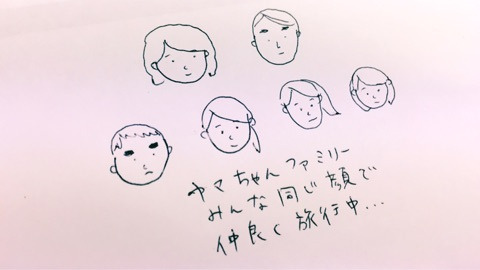 ヤマちゃんファミリー
みんな同じ顔で
仲良く旅行中...